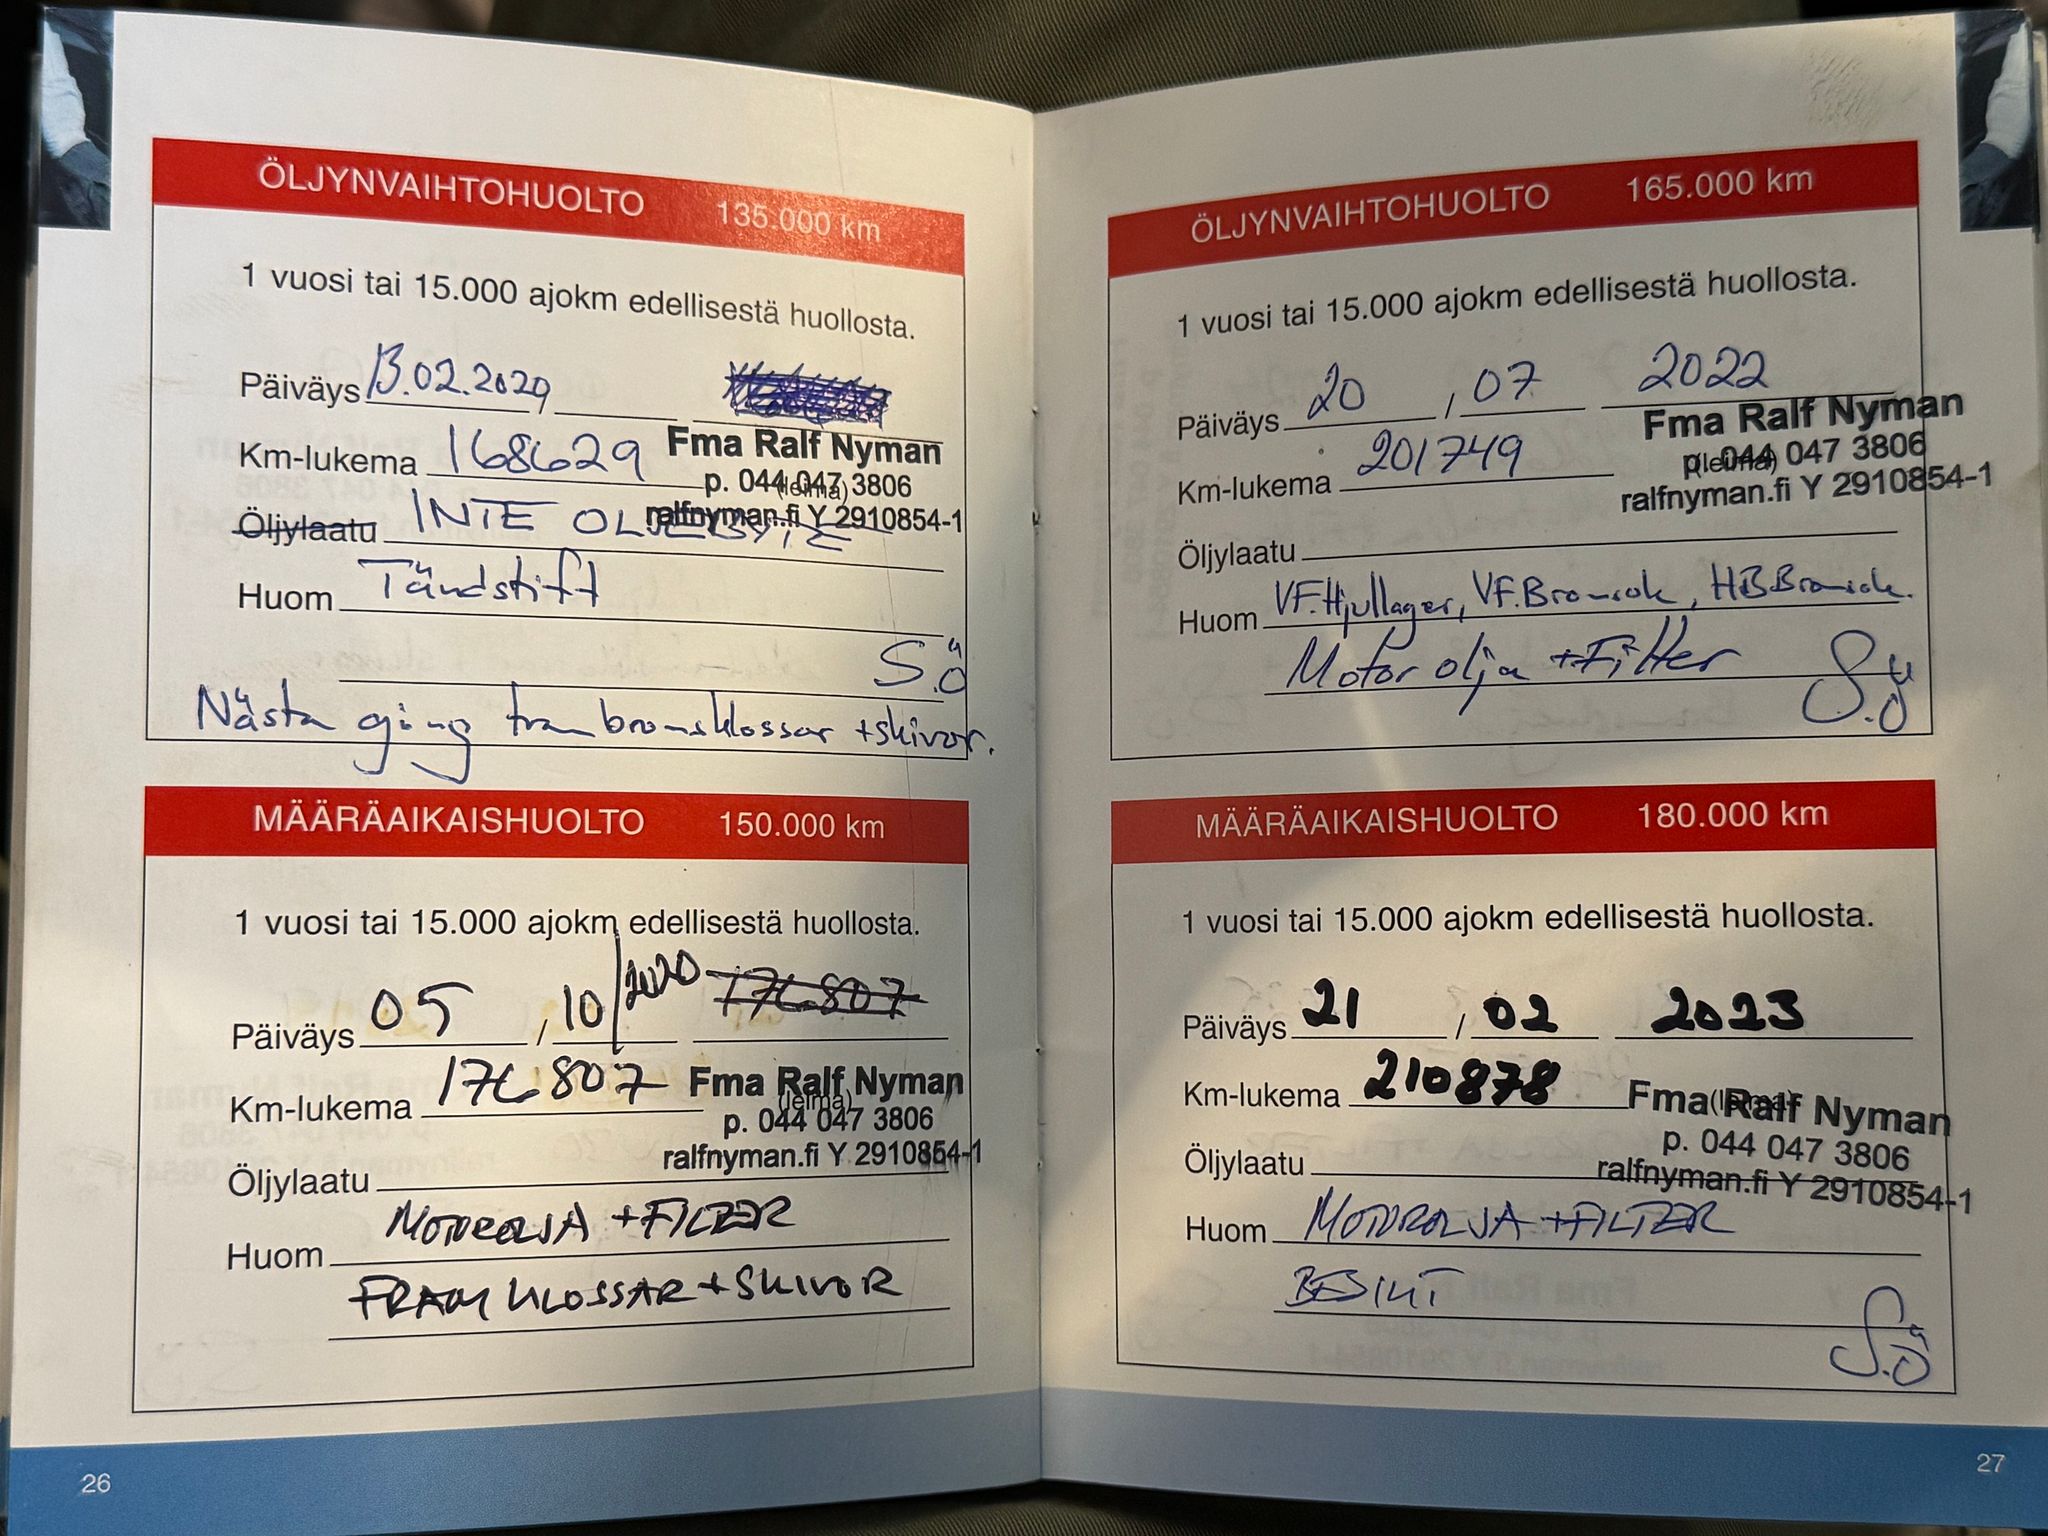 ÖLJYNVAIHTOHUOLTO 135.000 km
1 vuosi tai 15.000 ajokm edellisestä huollosta.
Päiväys 13.02.2020
Km-lukema 168629
Fma Ralf Nyman
p. 044 047 3806
(leima)
ralfnyman.fi Y 2910854-1
Öljylaatu INTE OLJEBYTE
Huom Tändstift
S.Ö
Nästa gång fram bromsklossar + skivor.
MÄÄRÄAIKAISHUOLTO 150.000 km
1 vuosi tai 15.000 ajokm edellisestä huollosta.
Päiväys 05 , 10 / 2020 176807
Km-lukema 176807
Fma Ralf Nyman
(leima)
p. 044 047 3806
ralfnyman.fi Y 2910854-1
Öljylaatu
Huom MOTOROLJA + FILTER
FRAM KLOSSAR + SKIVOR
26
ÖLJYNVAIHTOHUOLTO 165.000 km
1 vuosi tai 15.000 ajokm edellisestä huollosta.
Päiväys 20 , 07 2022
Km-lukema 201749
Fma Ralf Nyman
p. 044 047 3806
(leima)
ralfnyman.fi Y 2910854-1
Öljylaatu
Huom VF.Hjullager, VF.Bromsok, HB Bromsok.
Motor olja + Filter
S.Ö
MÄÄRÄAIKAISHUOLTO 180.000 km
1 vuosi tai 15.000 ajokm edellisestä huollosta.
Päiväys 21 / 02 2023
Km-lukema 210878
Fma Ralf Nyman
(leima)
p. 044 047 3806
ralfnyman.fi Y 2910854-1
Öljylaatu
Huom MOTOROLJA + FILTER
BESIKT
S.Ö
27